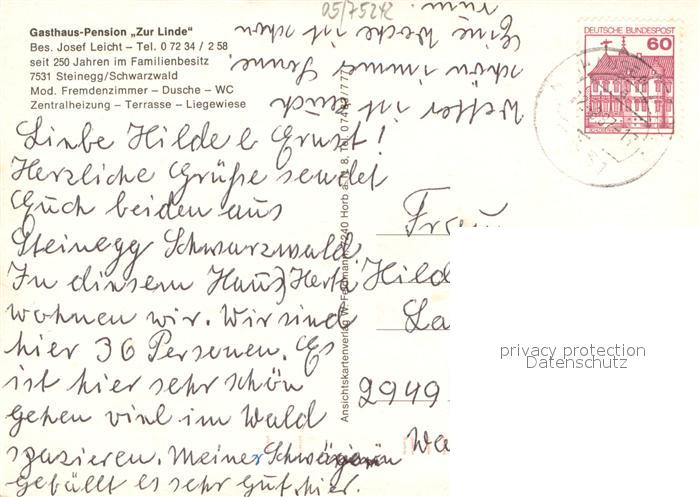 05/75212
Gasthaus-Pension „Zur Linde“
Bes. Josef Leicht – Tel. 0 72 34 / 2 58
seit 250 Jahren im Familienbesitz
7531 Steinegg/Schwarzwald
Mod. Fremdenzimmer – Dusche – WC
Zentralheizung – Terrasse – Liegewiese
DEUTSCHE BUNDESPOST
60
Liebe Hilde & Ernst!
Herzliche Grüße sendet
Euch beiden aus
Steinegg Schwarzwald
In diesem Haus, Herta
wohnen wir. Wir sind
hier 36 Personen. Es
ist hier sehr schön
gehen viel im Wald
spazieren. Meiner Schwägerin
gefällt es sehr gut hier.
Wetter ist auch
schön immer Sonne.
Eine Woche ist schon
rum.
Ansichtskartenverlag W. Feldmann, 7240 Horb a. N. 8, Tel. 07486/7777
Frau
Hild
La
2949
Wa
privacy protection
Datenschutz